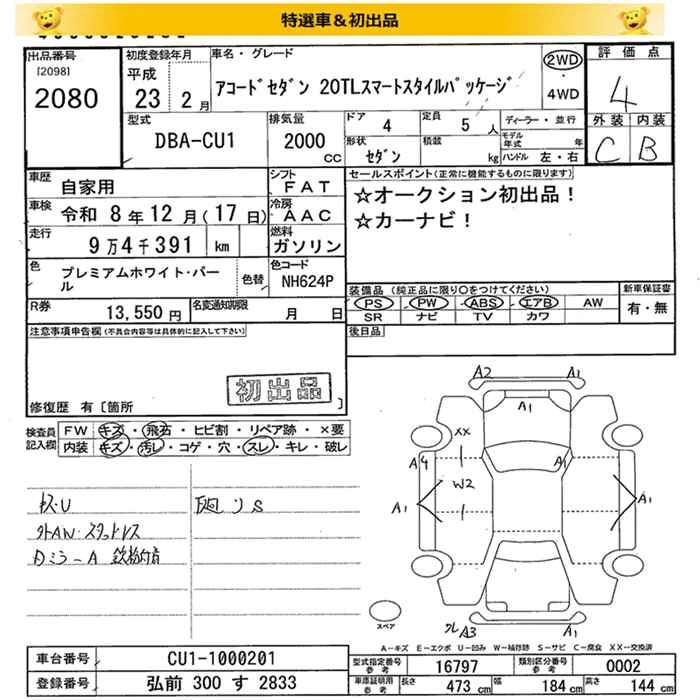 特選車＆初出品
出品番号
[2098]
2080
初度登録年月
平成
23 2 月
車名・グレード
アコードセダン 20TLスマートスタイルパッケージ
2WD
・
4WD
評価点
4
外装 内装
C B
型式
DBA-CU1
排気量
2000
CC
ドア 4
定員 5 人
形状 セダン
積載 kg
ディーラー・並行
モデル年式 年
ハンドル 左・右
車歴 自家用
シフト FAT
車検 令和 8年12月(17日)
冷房 AAC
走行 9万4千391 km
燃料 ガソリン
色 プレミアムホワイト・パール
色替
色コード NH624P
R券 13,550円
名変通知期限 月 日
セールスポイント(正常に機能するものに限ります)
☆オークション初出品！
☆カーナビ！
装備品(純正品に限り○をつけてください)
新車保証書
PS PW ABS エアB AW
有・無
SR ナビ TV カワ
後日品
注意事項申告欄(不具合内容等は具体的に記入して下さい)
初出品
修復歴 有〔箇所 〕
検査員記入欄
FW キズ・飛石・ヒビ割・リペア跡・×要
内装 キズ・汚レ・コゲ・穴・スレ・キレ・破レ
A2 A1
A1
XX
A4 A1
W2
A1 A1
クレ A3 A1
スペア
A−キズ E−エクボ U−凹み W−補修跡 S−サビ C−腐食 XX−交換済
車台番号 CU1-1000201
型式指定番号 参考 16797
類別区分番号 参考 0002
登録番号 弘前 300 す 2833
車庫証明用 参考 長さ 473 cm 幅 184 cm 高さ 144 cm